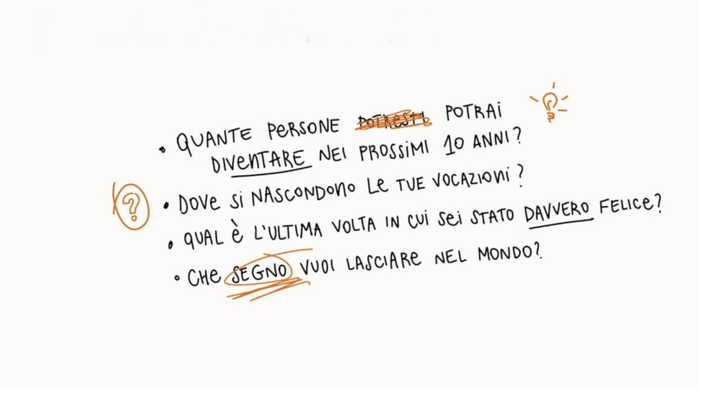 • QUANTE PERSONE POTRESTI POTRAI
DIVENTARE NEI PROSSIMI 10 ANNI?
• DOVE SI NASCONDONO LE TUE VOCAZIONI?
• QUAL È L'ULTIMA VOLTA IN CUI SEI STATO DAVVERO FELICE?
• CHE SEGNO VUOI LASCIARE NEL MONDO?
?